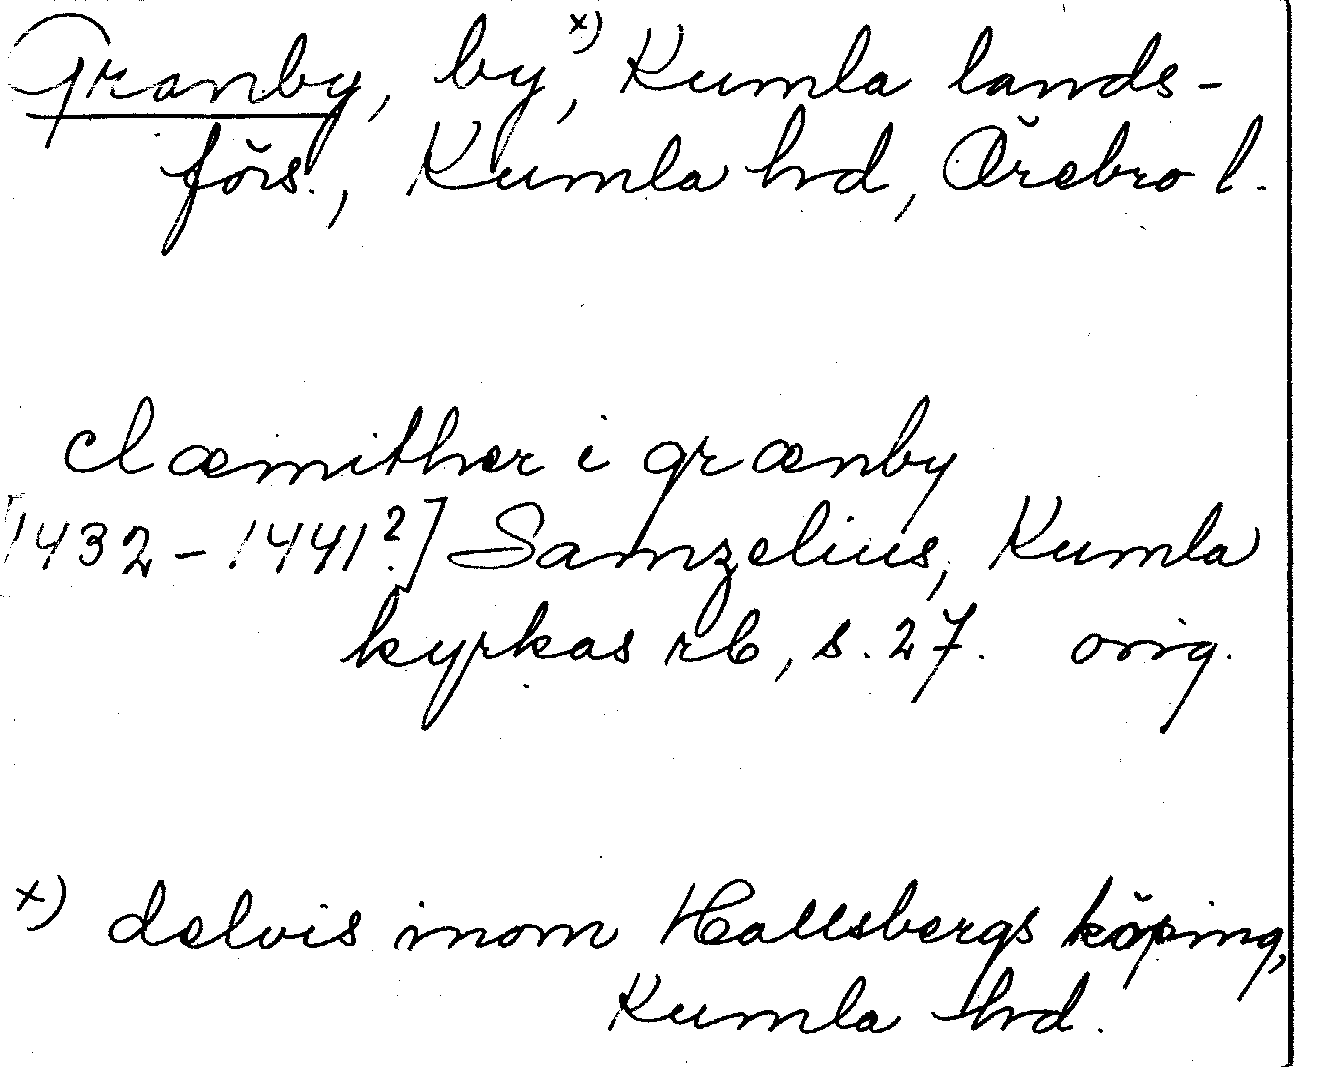 Granby, by,x) Kumla lands-
förs., Kumla hd, Örebro l.
clæmither i grænby
[1432-1441?] Samzelius, Kumla
kyrkas rb, s. 27. orig.
x) delvis inom Hallsbergs köping,
Kumla hd.